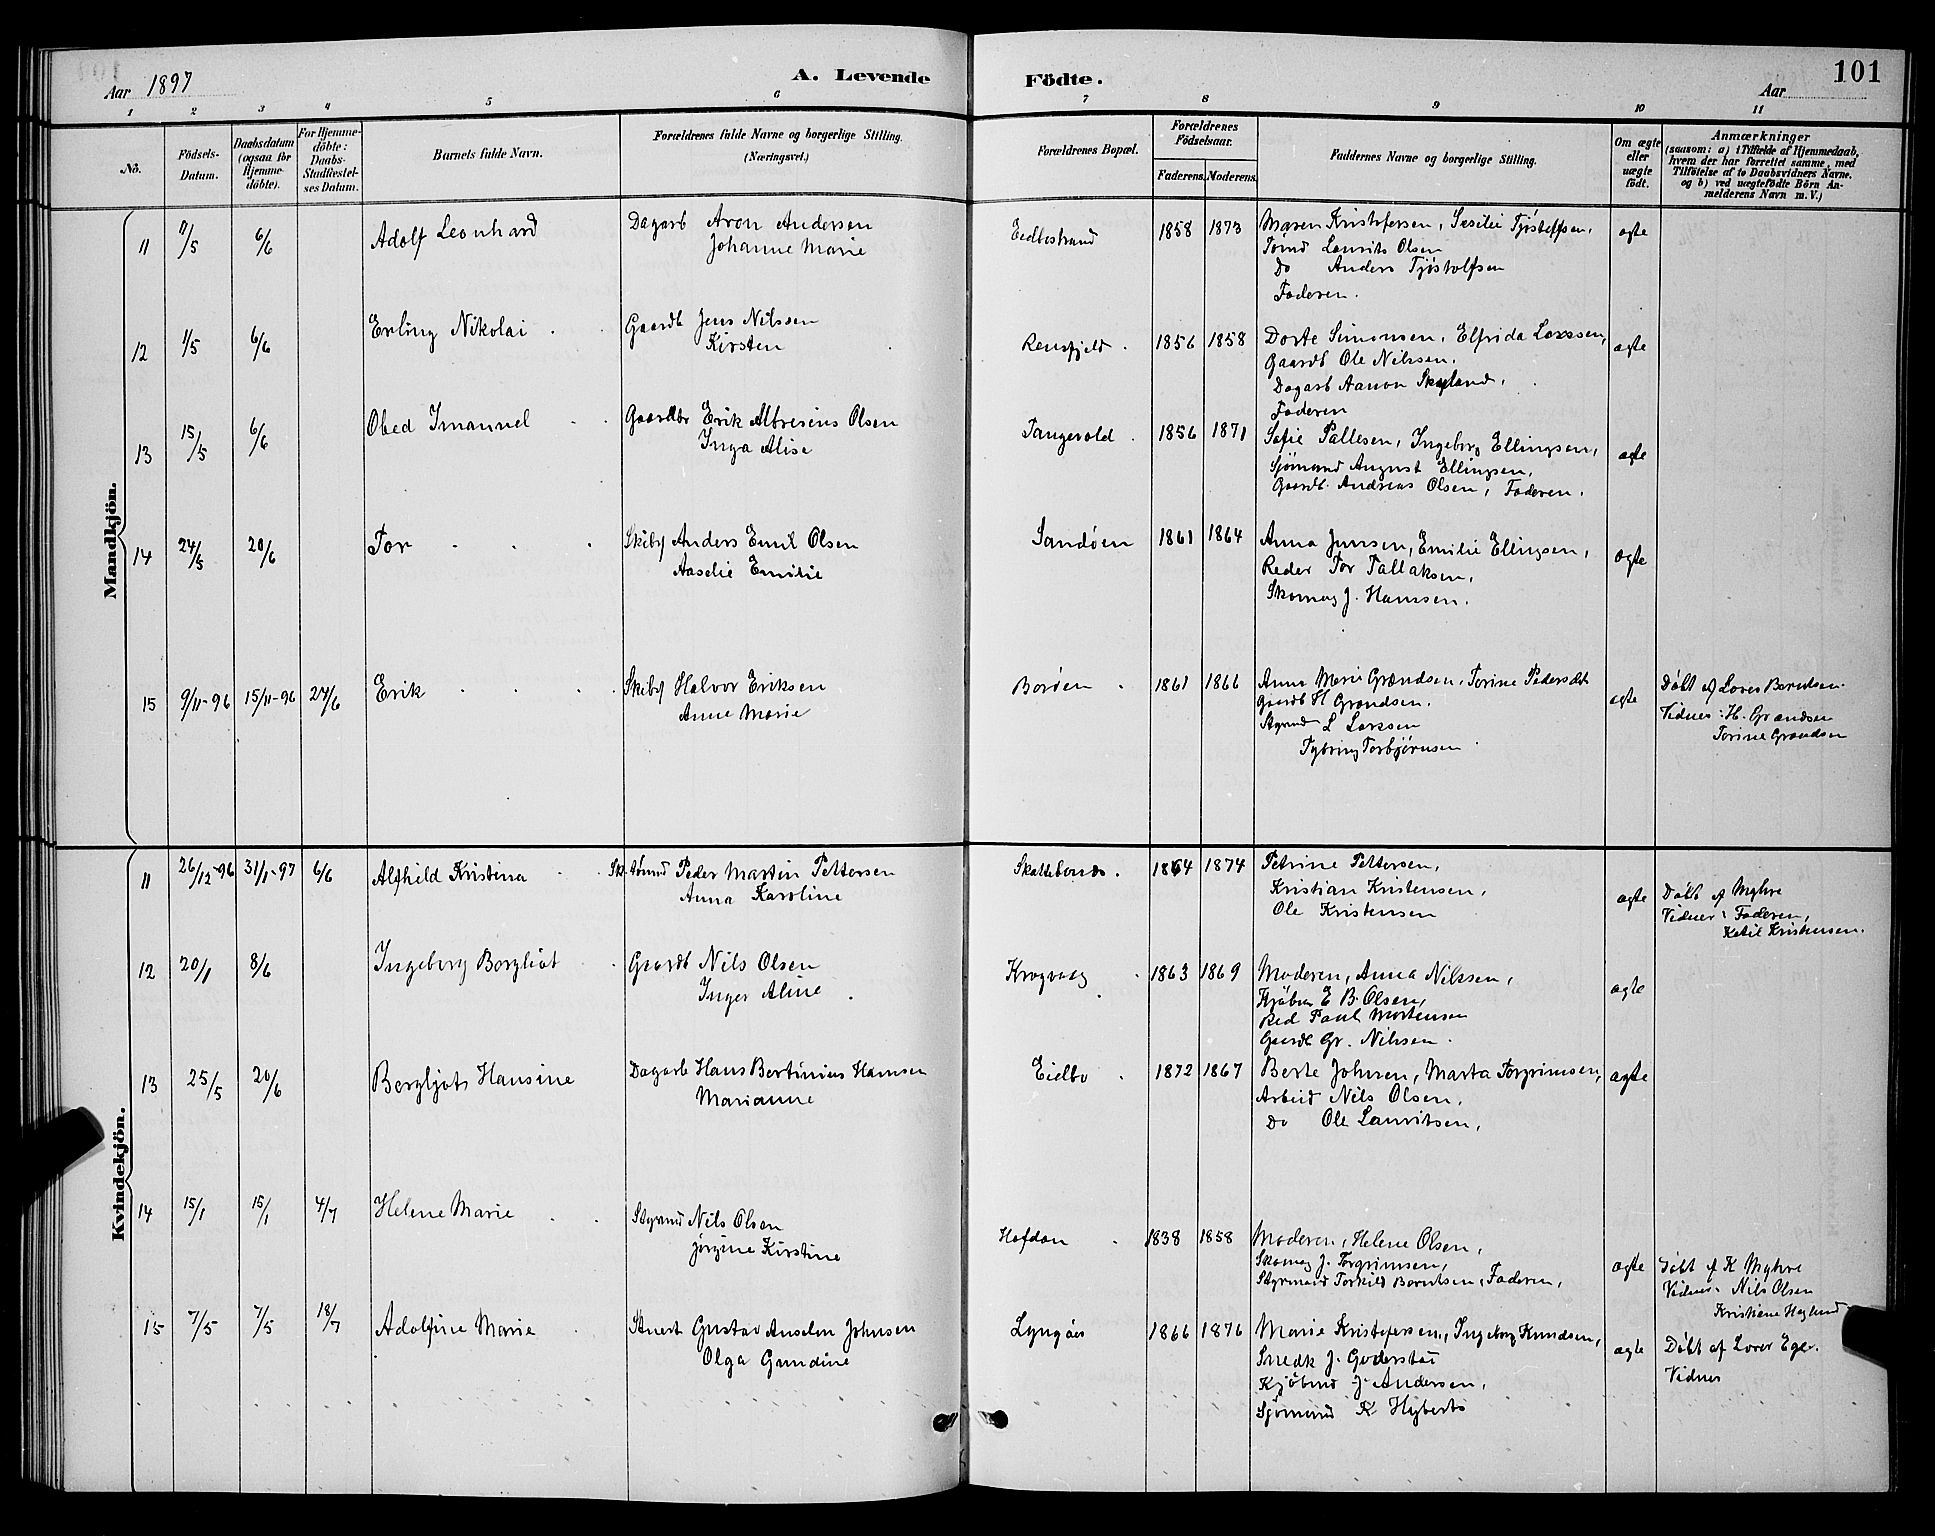 Aar 1897
A. Levende Födte.
Aar
101
1 2 3 4 5 6 7 8 9 10 11
No.
Födsels-Datum.
Daabsdatum (ogsaa for Hjemme-döbte).
For Hjemme-döbte: Daabs-Stadfæstel-ses Datum.
Barnets fulde Navn.
Forældrenes fulde Navne og borgerlige Stilling. (Næringsvei.)
Forældrenes Bopæl.
Forældrenes Födselsaar.
Faderens. Moderens.
Faddernes Navne og borgerlige Stilling.
Om ægte eller uægte födt.
Anmærkninger
(saasom: a) i Tilfælde af Hjemmedaab,
hvem der har forrettet samme, med
Tilföielse af to Daabsvidners Navne,
og b) ved uægtefödte Börn An-
melderens Navn m. V.)
Mandkjön.
11 11/5 6/6 Adolf Leonhard Dagarb Aron Andersen Eidbostrand 1858 1873 Maren Kristofersen, Sesilie Tjøstelfsen, ægte
Johanne Marie Tømd Laurits Olsen
Do Anders Tjøstolfsen
Faderen.
12 1/5 6/6 Erling Nikolai Gaardb Jens Nilssen 1856 1858 Dorte Simonsen, Elfrida Larssen, ægte
Kirsten Gaardb Ole Nilssen.
Dagarb Aanon Skyland,
Faderen
13 15/5 6/6 Obed Imanuel Gaardbr Erik Albresens Olsen Tangevold 1856 1871 Sofie Pallesen, Ingeborg Ellingsen, ægte
Inga Alise Sjømand August Ellingsen,
Gaardb. Andreas Olsen, Faderen.
14 24/5 20/6 Tor Skibsf Anders Emil Olsen Sandøen 1861 1864 Anna Jensen, Emilie Ellingsen, ægte
Aaselie Emilie Reder Tor Tallaksen,
Skomag J. Hanssen.
15 9/11-96 15/11-96 27/6 Erik Skibsf Halvor Eriksen Borøen 1861 1866 Anna Marie Grændsen, Torine Pedersdt ægte Døbt af Lovis Berntsen
Anne Marie Gaardb H Grandsen. Vidner: H. Grandsen
Styrmd L Larssen Torine Grandsen
Torbjørnsen
Kvindekjön.
11 26/12-96 31/1-97 6/6 Alfhild Kristina Sk. tømmd Peder Martin Pettersen 1864 1874 Petrine Pettersen, ægte
Anna Karoline Kristian Kristensen, Døbt af Myhre
Ole Kristensen Vidner: Faderen,
Ketil Kristensen.
12 20/1 8/6 Ingeborg Borgliot Gaardb Nils Olsen Krogvaag 1863 1869 Moderen, Anna Nilssen, ægte
Inger Aline Kjøbm E B. Olsen,
Red Paul Mortensen
Gaardb Gr. Nilssen.
13 25/5 20/6 Bergljots Hansine Dagarb Hans Bertinius Hansen Eidbo 1872 1867 Berte Johnsen, Marta Torgrimsen, ægte
Marianne Arbeid Nils Olsen,
Do Ole Lauritsen,
14 15/1 15/1 4/7 Helene Marie Styrmd Nils Olsen 1838 1858 Moderen, Helene Olsen, ægte
Jørgine Kirstine Skomag J. Torgrimsen, Døbt af K Myhre
Styrmand Torkild Berntsen, Faderen, Vidner. Nils Olsen
Kristiane Haglund
15 7/5 7/5 18/7 Adolfine Marie Stuert Gustav Anselm Johnsen Lyngøen 1866 1876 Marie Kristofersen, Ingeborg Knudsen, ægte Døbt af Lover Ege.
Olga Gundine Snedk J. Goderstad Vidner
Kjøbmd J Andersen,
Sjømand K Hyberts